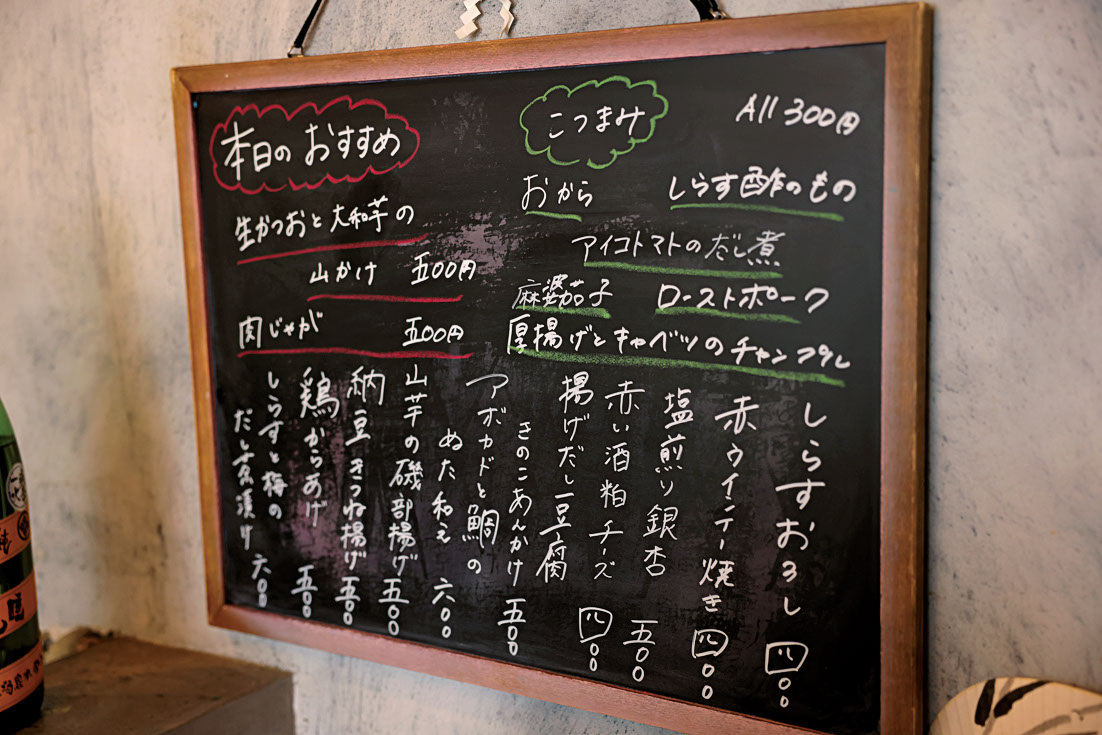 本日のおすすめ
生かつおと大和芋の
山かけ 五00円
肉じゃが 五00円
こつまみ All 300円
おから しらす酢のもの
アイコトマトのだし煮
麻婆茄子 ローストポーク
厚揚げとキャベツのチャンプル
しらすおろし 四00
赤ウインナー焼き 四00
塩煎り銀杏 五00
赤い酒粕チーズ 四00
揚げだし豆腐
きのこあんかけ 五00
アボカドと鯛の
ぬた和え 六00
山芋の磯部揚げ 五00
納豆きつね揚げ 五00
鶏からあげ 五00
しらすと梅の
だし茶漬け 六00